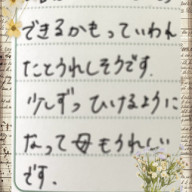 できるかもっていわん
たことうれしそうです.
少しずつひけるように
なって母もうれしい
です.